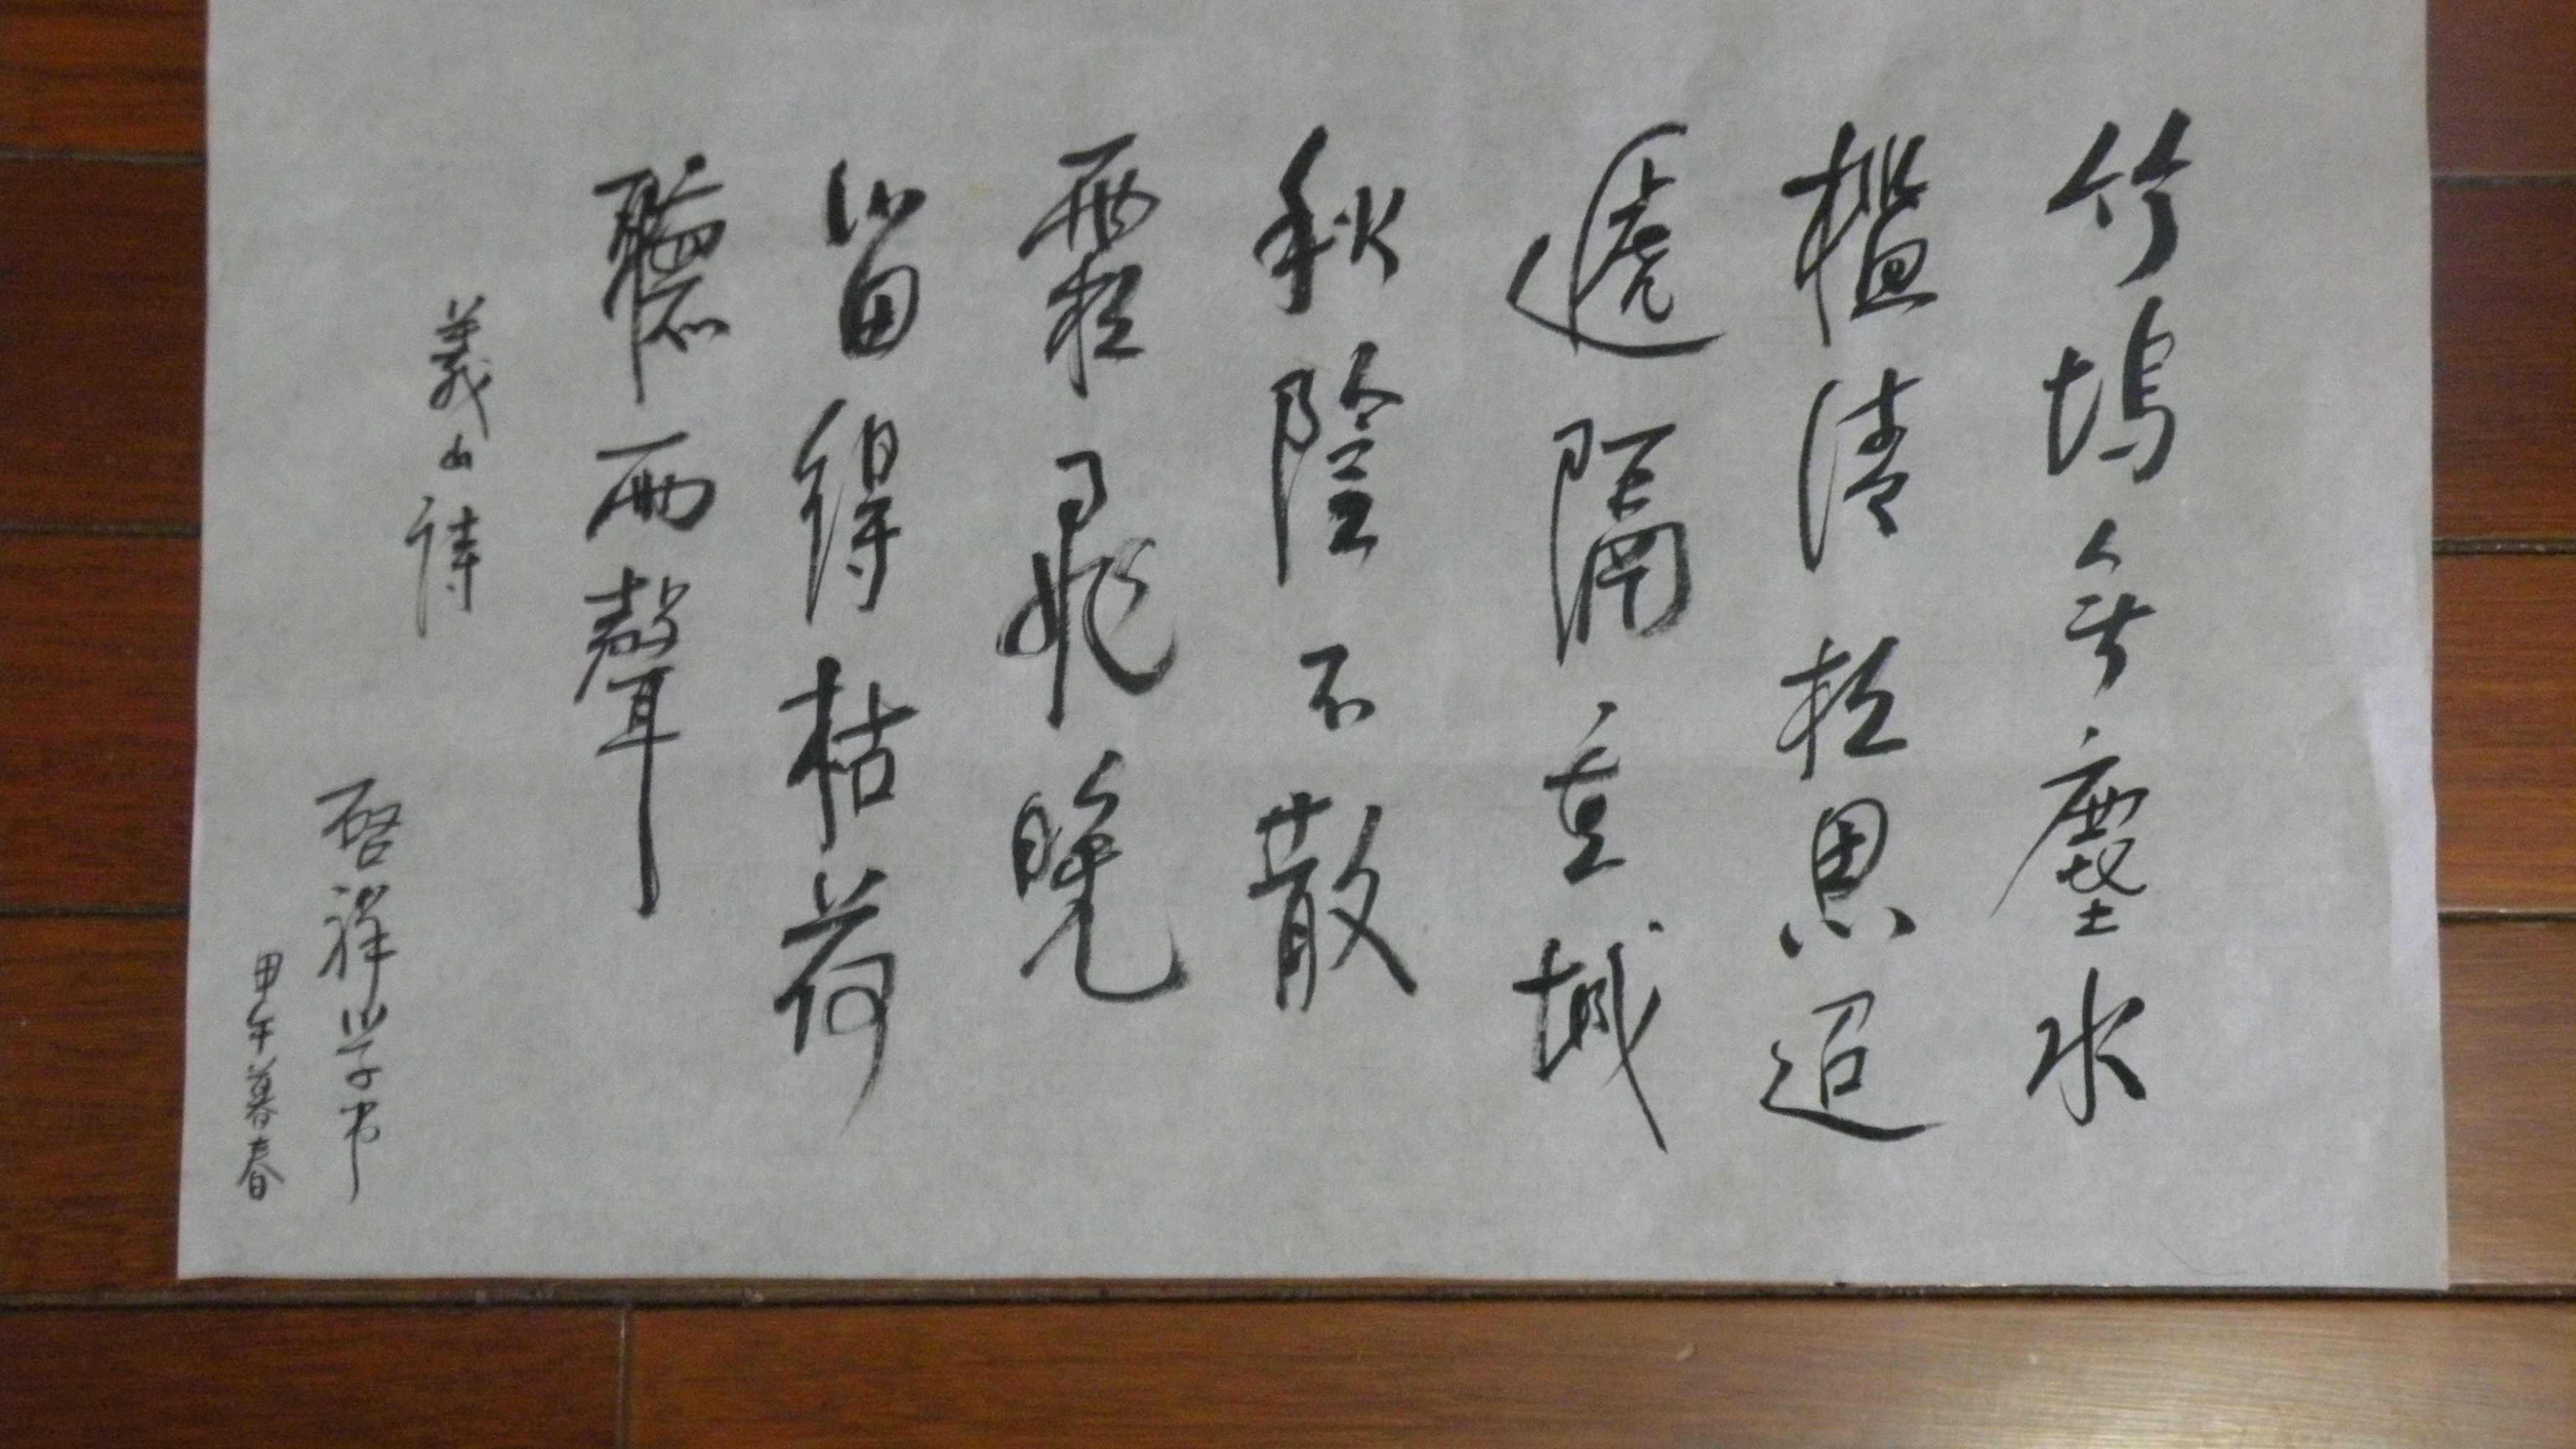 竹塢無塵水
檻清相思迢
遞隔重城
秋陰不散
霜飛晚
留得枯荷
聽雨聲
義山詩
啓祥学书
甲午暮春